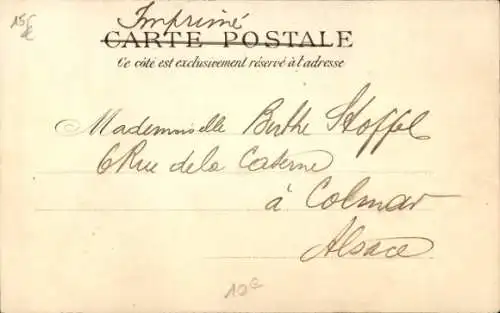 15€
Imprimé
CARTE POSTALE
Ce côté est exclusivement réservé à l'adresse
Mademoiselle Berthe Stoffel
6 Rue de la Caserne
à Colmar
Alsace
10€